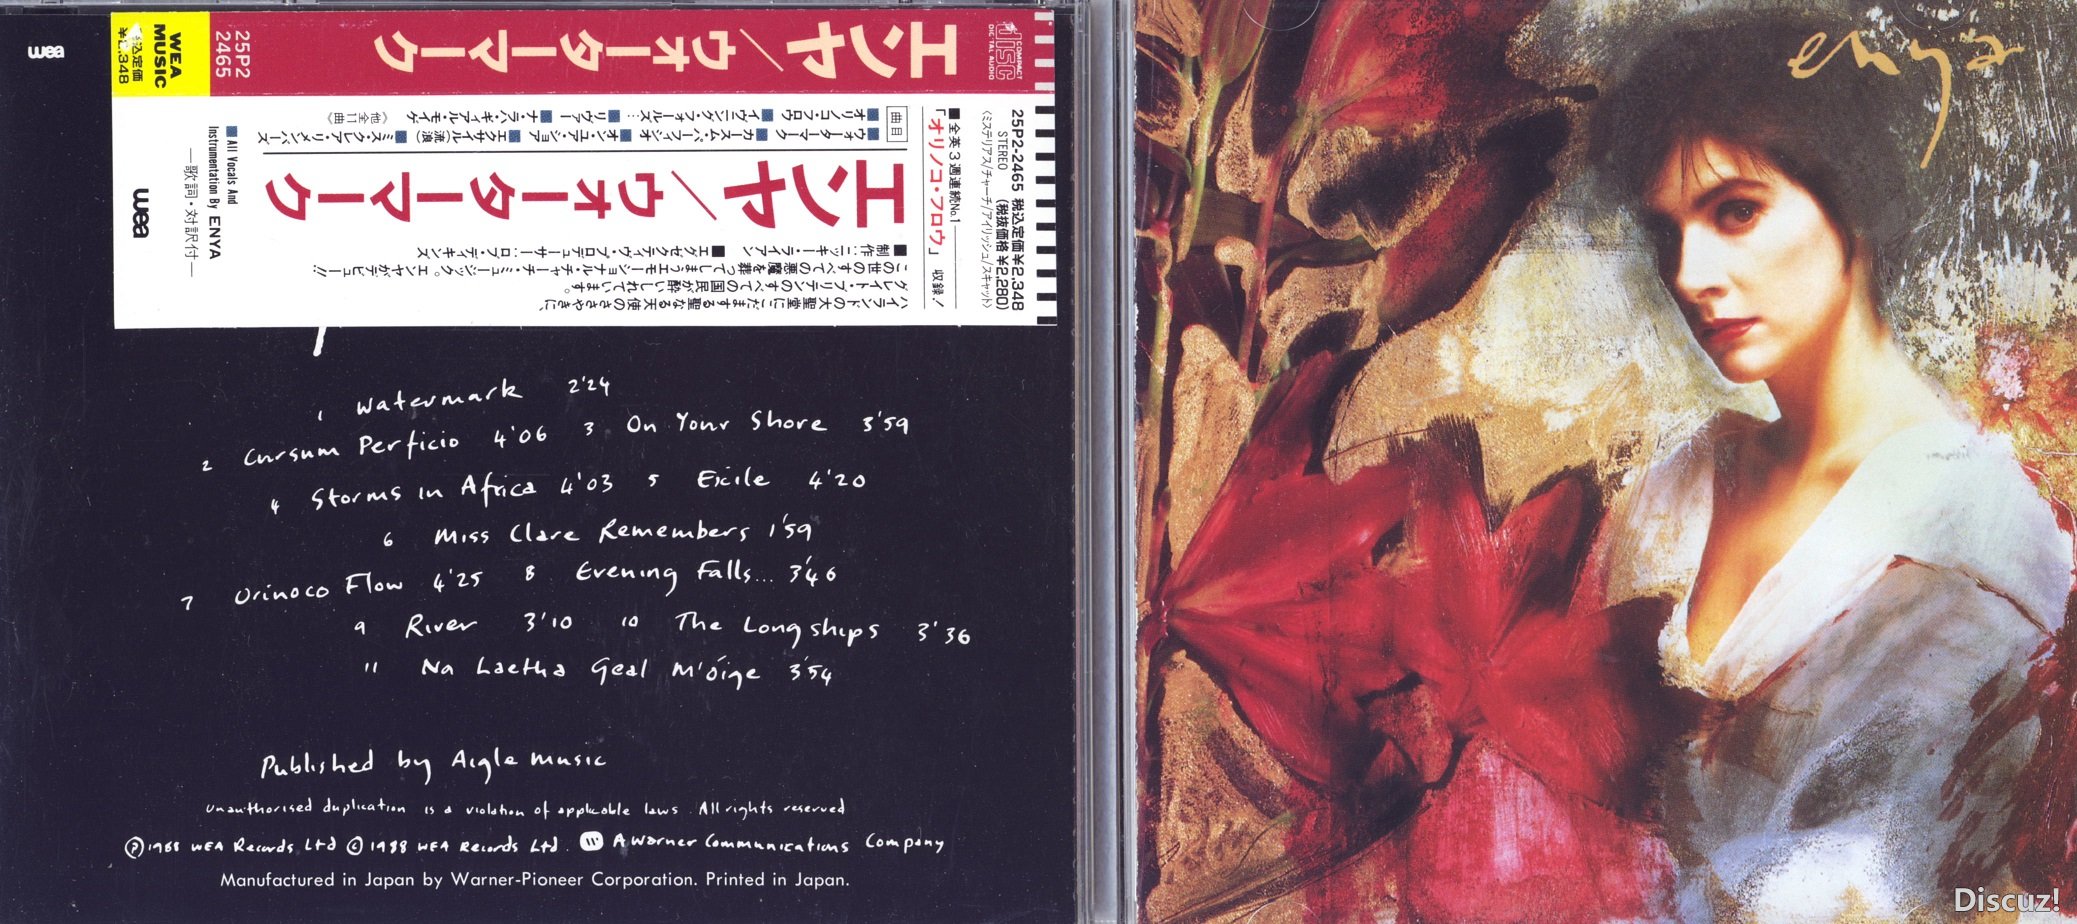 wea
WEA
MUSIC
税込定価
¥2,348
25P2
2465
エンヤ／ウォーターマーク
COMPACT
disc
DIGITAL AUDIO
25P2-2465 税込定価¥2,348
STEREO (税抜価格 ¥2,280)
〈ミステリアス/チャーチ/アイリッシュ/スキャット〉
■全英3週連続No.1
「オリノコ・フロウ」収録！
エンヤ／ウォーターマーク
曲目
■ウォーターマーク■カースム・パーフィシオ■オン・ユア・ショア■エグザイル(流浪)■ミス・クレア・リメンバーズ
■オリノコ・フロウ■イヴニング・フォールズ…■リヴァー■ナ・ラハ・ギァアル・モイゲ 《他全11曲》
■制作:ニッキー・ライアン ■エグゼクティヴ・プロデューサー:ロブ・ディキンズ
ハイランドの大聖堂にこだまする聖なる天使のささやきに、
グレイト・ブリテンのすべての国民が酔いしれています。
この世のすべての悪魔を葬ってしまうエモーショナル・チャーチ・ミュージック。エンヤがデビュー!!
■All Vocals And
Instrumentation By ENYA
—歌詞・対訳付—
wea
1 Watermark 2'24
2 Cursum Perficio 4'06 3 On Your Shore 3'59
4 Storms in Africa 4'03 5 Exile 4'20
6 Miss Clare Remembers 1'59
7 Orinoco Flow 4'25 8 Evening Falls... 3'46
9 River 3'10 10 The Longships 3'36
11 Na Laetha Geal M'óige 3'54
Published by Aigle Music
Unauthorised duplication is a violation of applicable laws. All rights reserved
Ⓟ1988 WEA Records Ltd © 1988 WEA Records Ltd. A Warner Communications Company
Manufactured in Japan by Warner-Pioneer Corporation. Printed in Japan.
enya
Discuz!